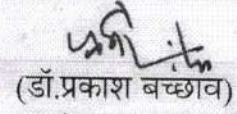 (डॉ.प्रकाश बच्छाव)